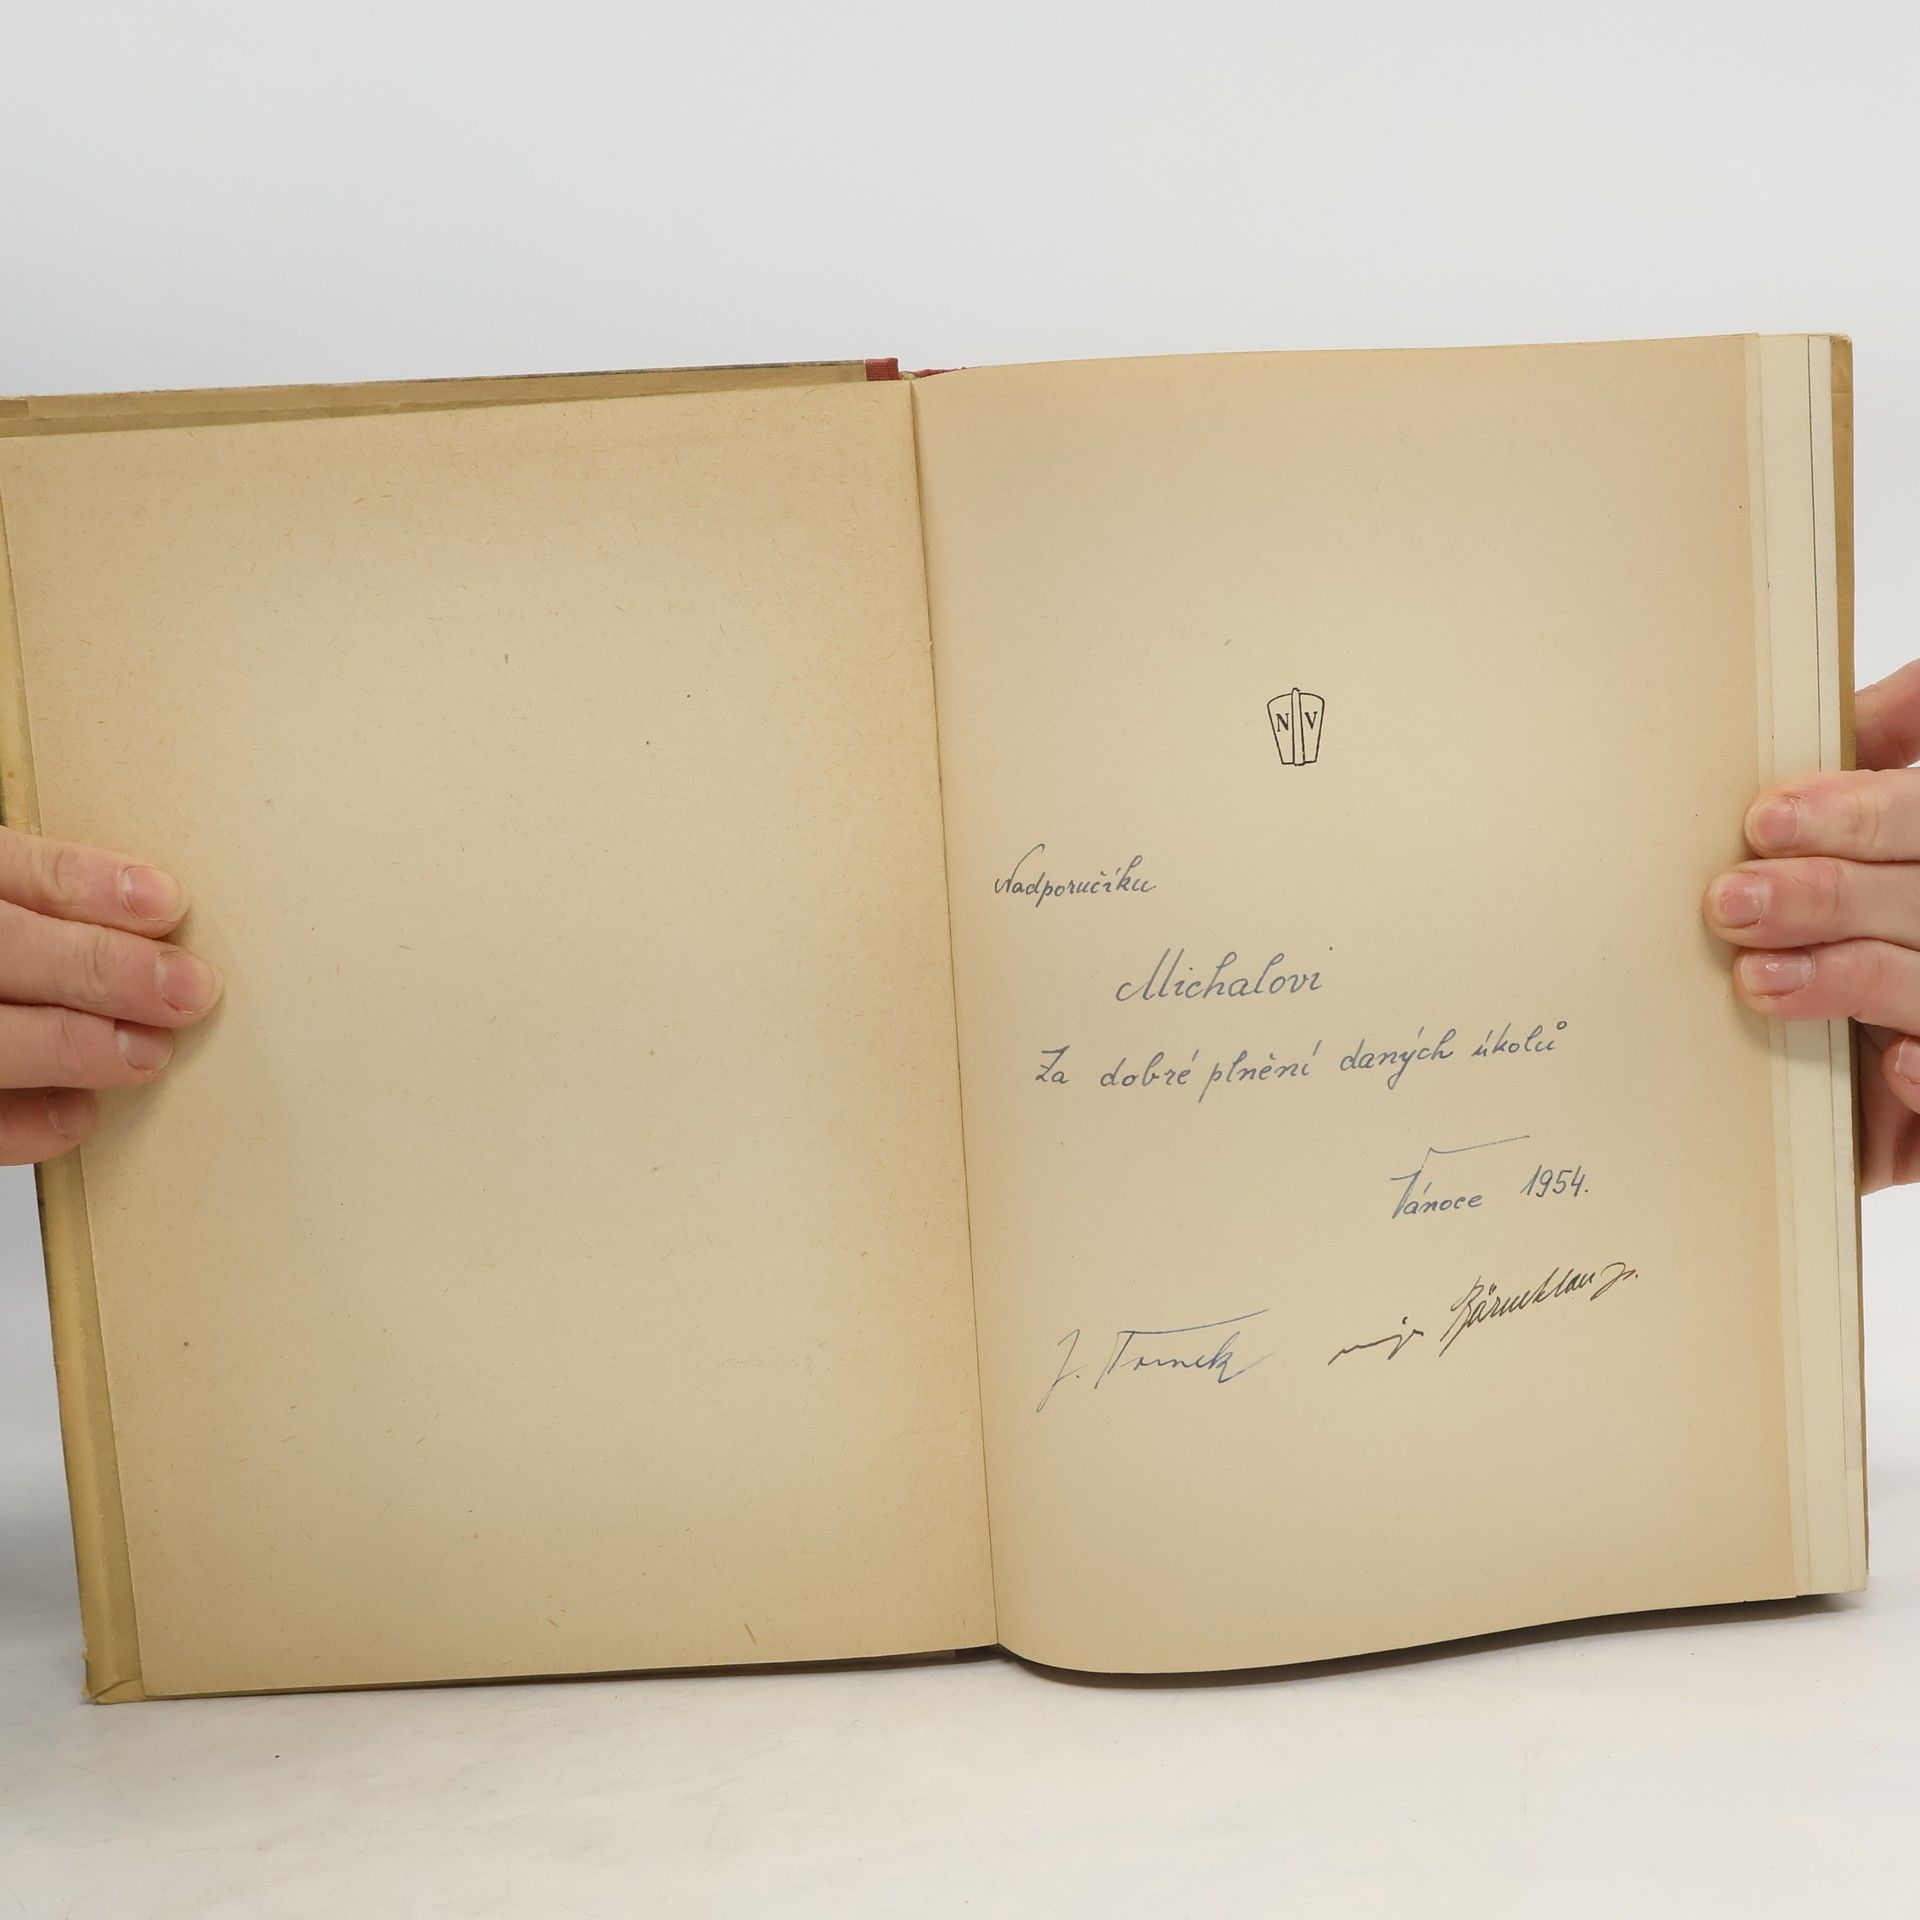 N V
Nadporučíku
Michalovi
Za dobré plnění daných úkolů
Vánoce 1954.
J. Tomek